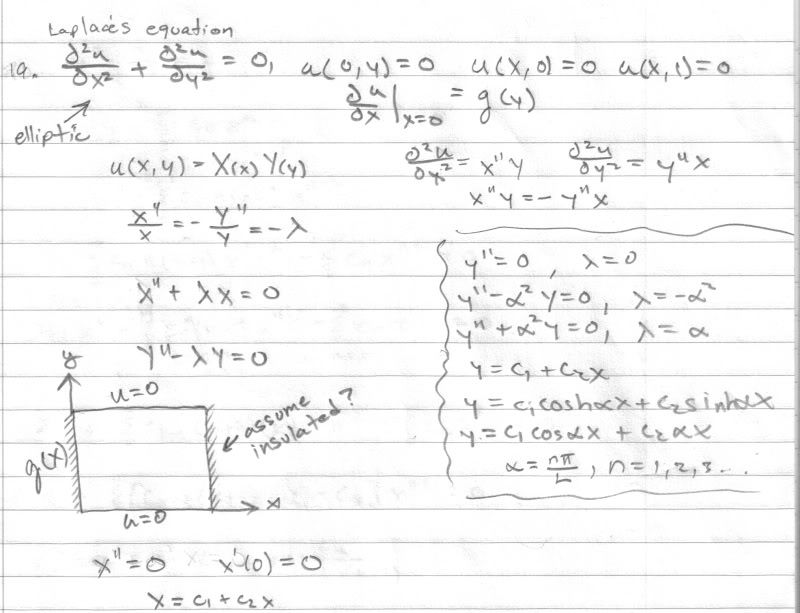 Laplace's equation
19. ∂²u/∂x² + ∂²u/∂y² = 0, u(0,y)=0 u(x,0)=0 u(x,1)=0
∂u/∂x |x=0 = g(y)
elliptic
u(x,y) = X(x) Y(y)
∂²u/∂x² = x''y ∂²u/∂y² = y''x
x''y = - y''x
x''/x = - Y''/Y = -λ
X'' + λx = 0
Y'' - λY = 0
y'' = 0, λ=0
y'' - α²y = 0, λ = -α²
y'' + α²y = 0, λ = α
y = c₁ + c₂x
y = c₁coshαx + c₂sinhαx
y = c₁cosαx + c₂αx
α = nπ/L, n = 1, 2, 3...
y
u=0
assume
insulated?
g(x)
u=0
x
x''=0 x'(0)=0
x = c₁ + c₂x